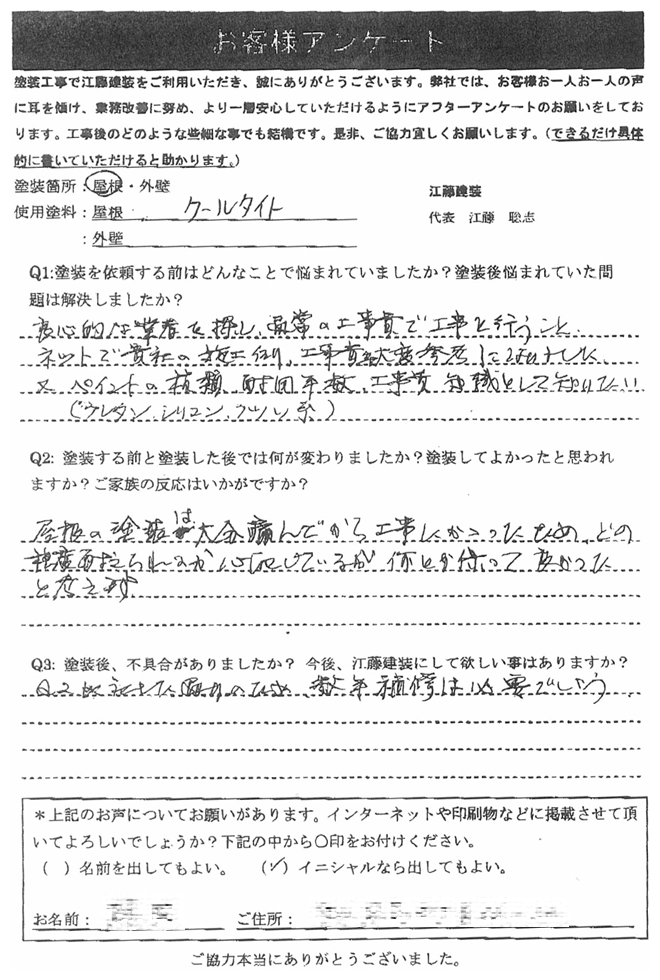 お客様アンケート
塗装工事で江藤建装をご利用いただき、誠にありがとうございます。弊社では、お客様お一人お一人の声
に耳を傾け、業務改善に努め、より一層安心していただけるようにアフターアンケートのお願いをしてお
ります。工事後のどのような些細な事でも結構です。是非、ご協力宜しくお願いします。(できるだけ具体
的に書いていただけると助かります。)
塗装箇所：屋根・外壁
江藤建装
使用塗料：屋根 クールタイト
代表 江藤 聡志
：外壁
Q1:塗装を依頼する前はどんなことで悩まれていましたか？塗装後悩まれていた問
題は解決しましたか？
良心的な業者を探し、通常の工事費で工事を行うこと、
ネットで貴社の施工例、工事費大変参考になりました
又ペイントの種類、耐用年数、工事費 知識として知りたい
(ウレタン、シリコン、フッソ系)
Q2: 塗装する前と塗装した後では何が変わりましたか？塗装してよかったと思われ
ますか？ご家族の反応はいかがですか？
屋根の塗装は大分痛んでから工事にかかったため、どの
程度耐えられるのか心配しているが 何とか 良かった
と思えます
Q3: 塗装後、不具合がありましたか？ 今後、江藤建装にして欲しい事はありますか？
Q.2 のため 数年 補修は必要でしょう
＊上記のお声についてお願いがあります。インターネットや印刷物などに掲載させて頂
いてよろしいでしょうか？下記の中から○印をお付けください。
( ) 名前を出してもよい。 (✓) イニシャルなら出してもよい。
お名前： ご住所：
ご協力本当にありがとうございました。